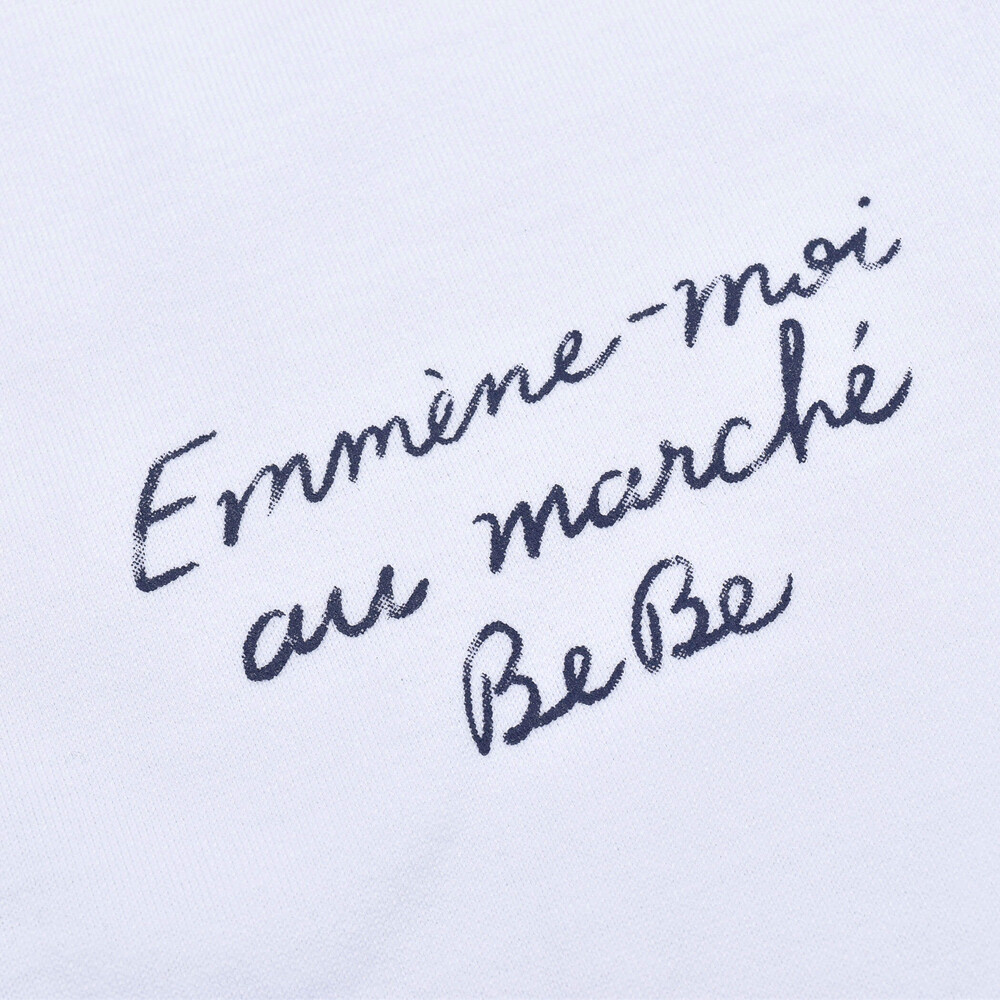 Emmène-moi
au marché
BeBe